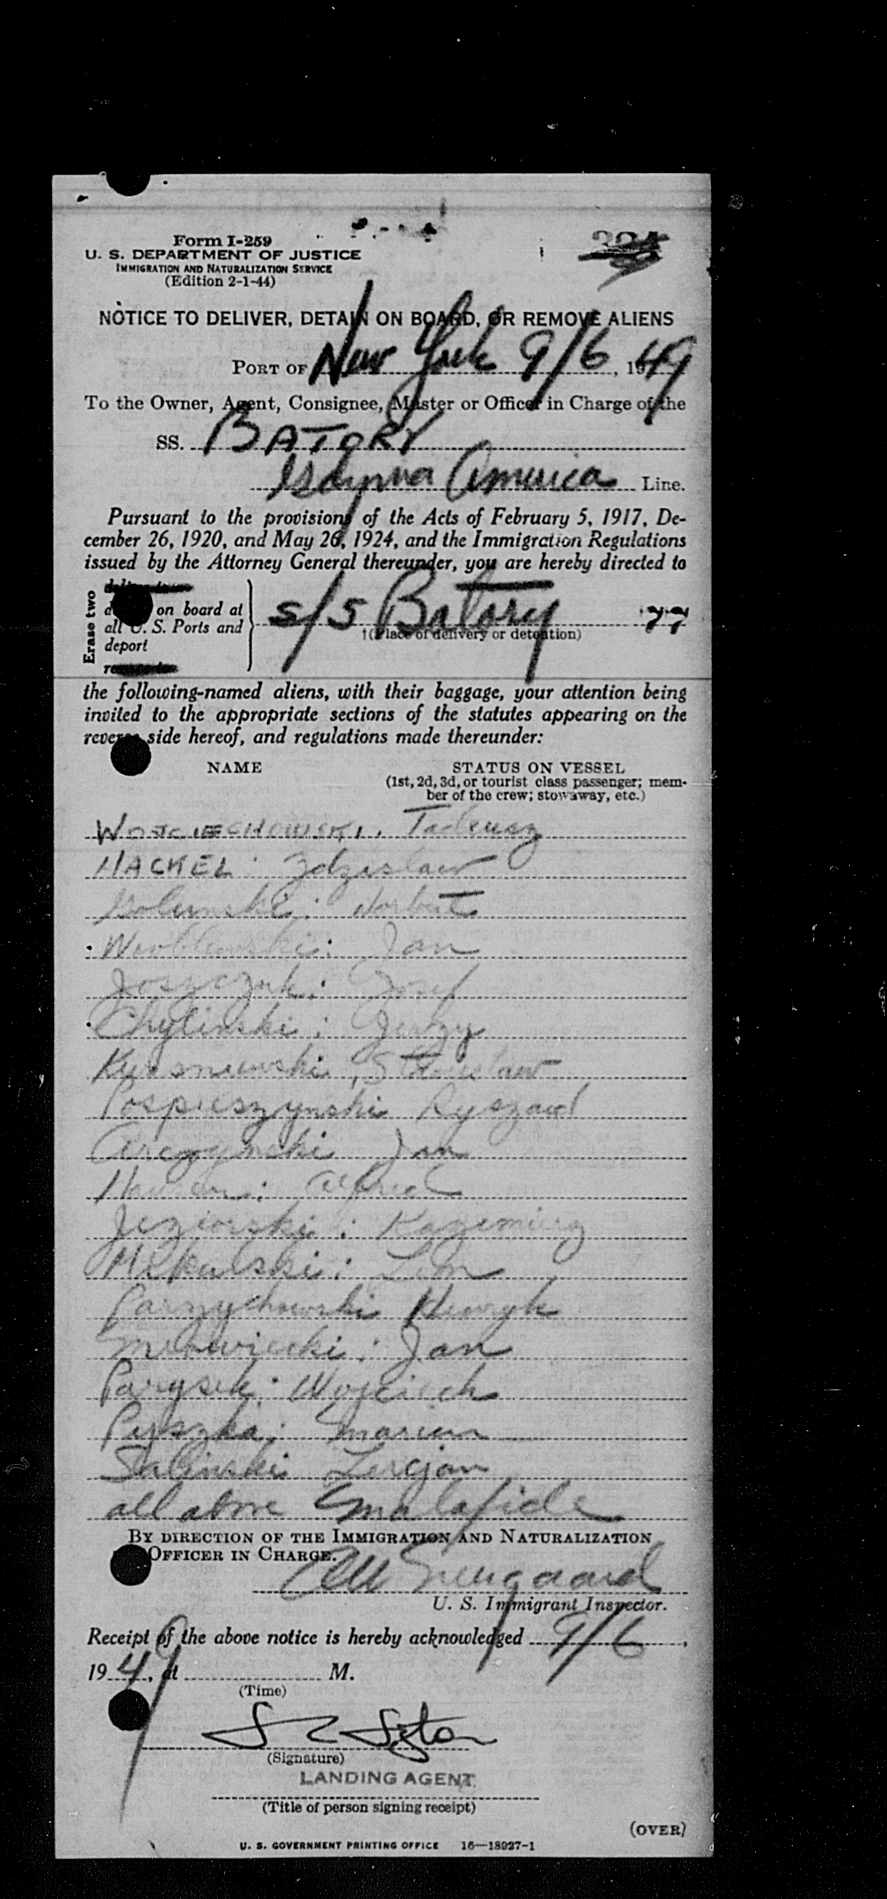 Form I-259
U. S. DEPARTMENT OF JUSTICE
IMMIGRATION AND NATURALIZATION SERVICE
(Edition 2-1-44)
NOTICE TO DELIVER, DETAIN ON BOARD, OR REMOVE ALIENS
PORT OF New York 9/6, 1949
To the Owner, Agent, Consignee, Master or Officer in Charge of the
SS. BATORY
Gdynia America Line.
Pursuant to the provisions of the Acts of February 5, 1917, De-
cember 26, 1920, and May 26, 1924, and the Immigration Regulations
issued by the Attorney General thereunder, you are hereby directed to
Erase two
on board at
all U. S. Ports and
deport
S/S Batory 77
†(Place of delivery or detention)
the following-named aliens, with their baggage, your attention being
invited to the appropriate sections of the statutes appearing on the
reverse side hereof, and regulations made thereunder:
NAME STATUS ON VESSEL
(1st, 2d, 3d, or tourist class passenger; mem-
ber of the crew; stowaway, etc.)
WOJCIECHOWSKI, Tadeusz
HACKEL: Zdzislaw
Golunski: Norbert
Wroblewski: Jan
Joszczuk: Josef
Chylinski: Jerzy
Stanislaw
Pospieszynski Ryszard
Jan
Alfred
Jeziorski: Kazimierz
Mikulski: Leon
Parzychowski Henryk
Jan
Parysek: Wojciech
Pyszka: Marian
Salinski Lucjan
all above Malafide
BY DIRECTION OF THE IMMIGRATION AND NATURALIZATION
OFFICER IN CHARGE.
U. S. Immigrant Inspector.
Receipt of the above notice is hereby acknowledged 9/6,
1949, at M.
(Time)
(Signature)
LANDING AGENT
(Title of person signing receipt)
(OVER)
U. S. GOVERNMENT PRINTING OFFICE 16—18927-1